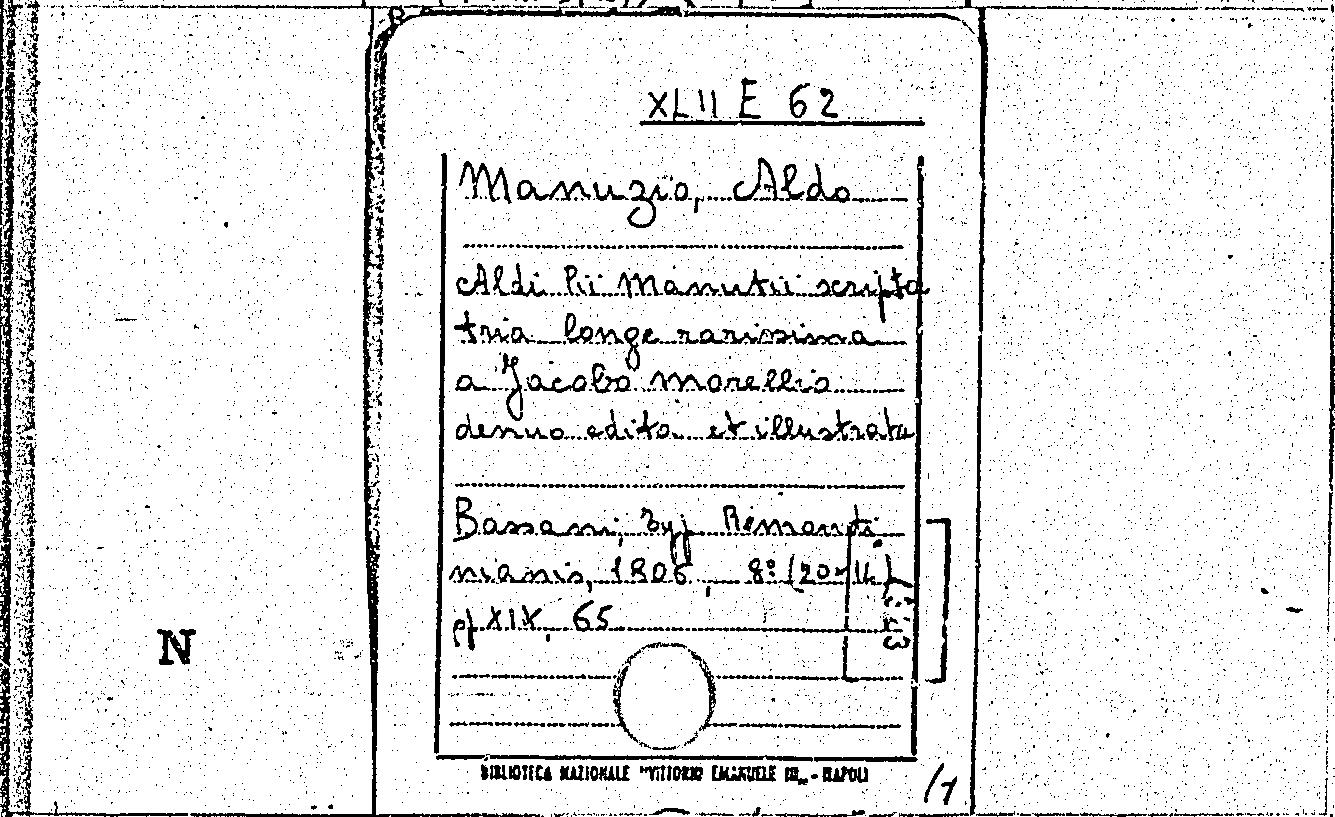 XLII E 62
Manuzio, Aldo
Aldi Pii Manutii scripta
tria longe rarissima
a Jacobo Morellio
denuo edita et illustrata
Bassani, Typ Remondi
nianis, 1806, 8º (20x14)
pp XIX, 65
N
BIBLIOTECA NAZIONALE "VITTORIO EMANUELE III„ - NAPOLI
/1